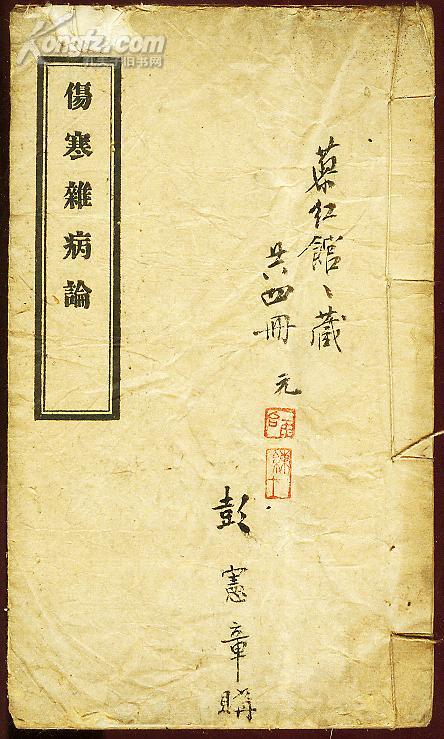 Kongfz.com
孔夫子旧书网
傷寒雜病論
葉紅館、藏
共四冊 元
彭憲章購